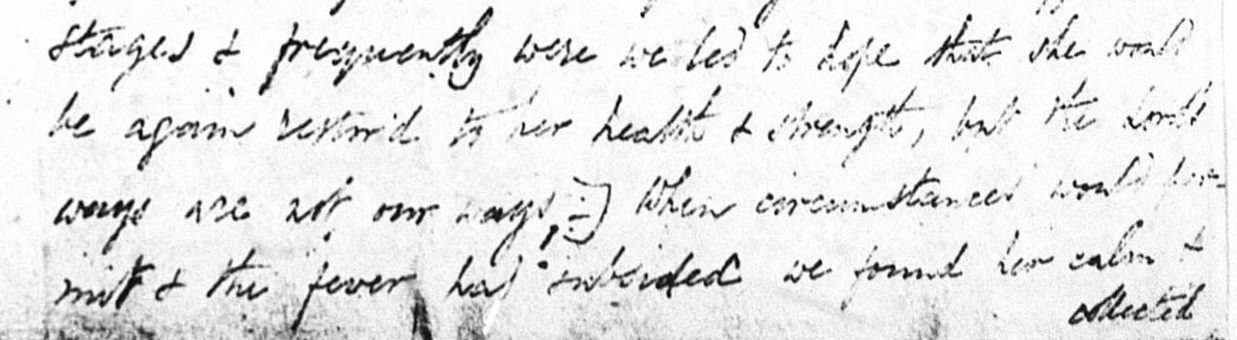 stages & frequently were we led to hope that she would
be again restored to her health & strength, but the Lords
ways are not our ways, :) When circumstances would per-
mit & the fever had subsided we found her calm &
collected